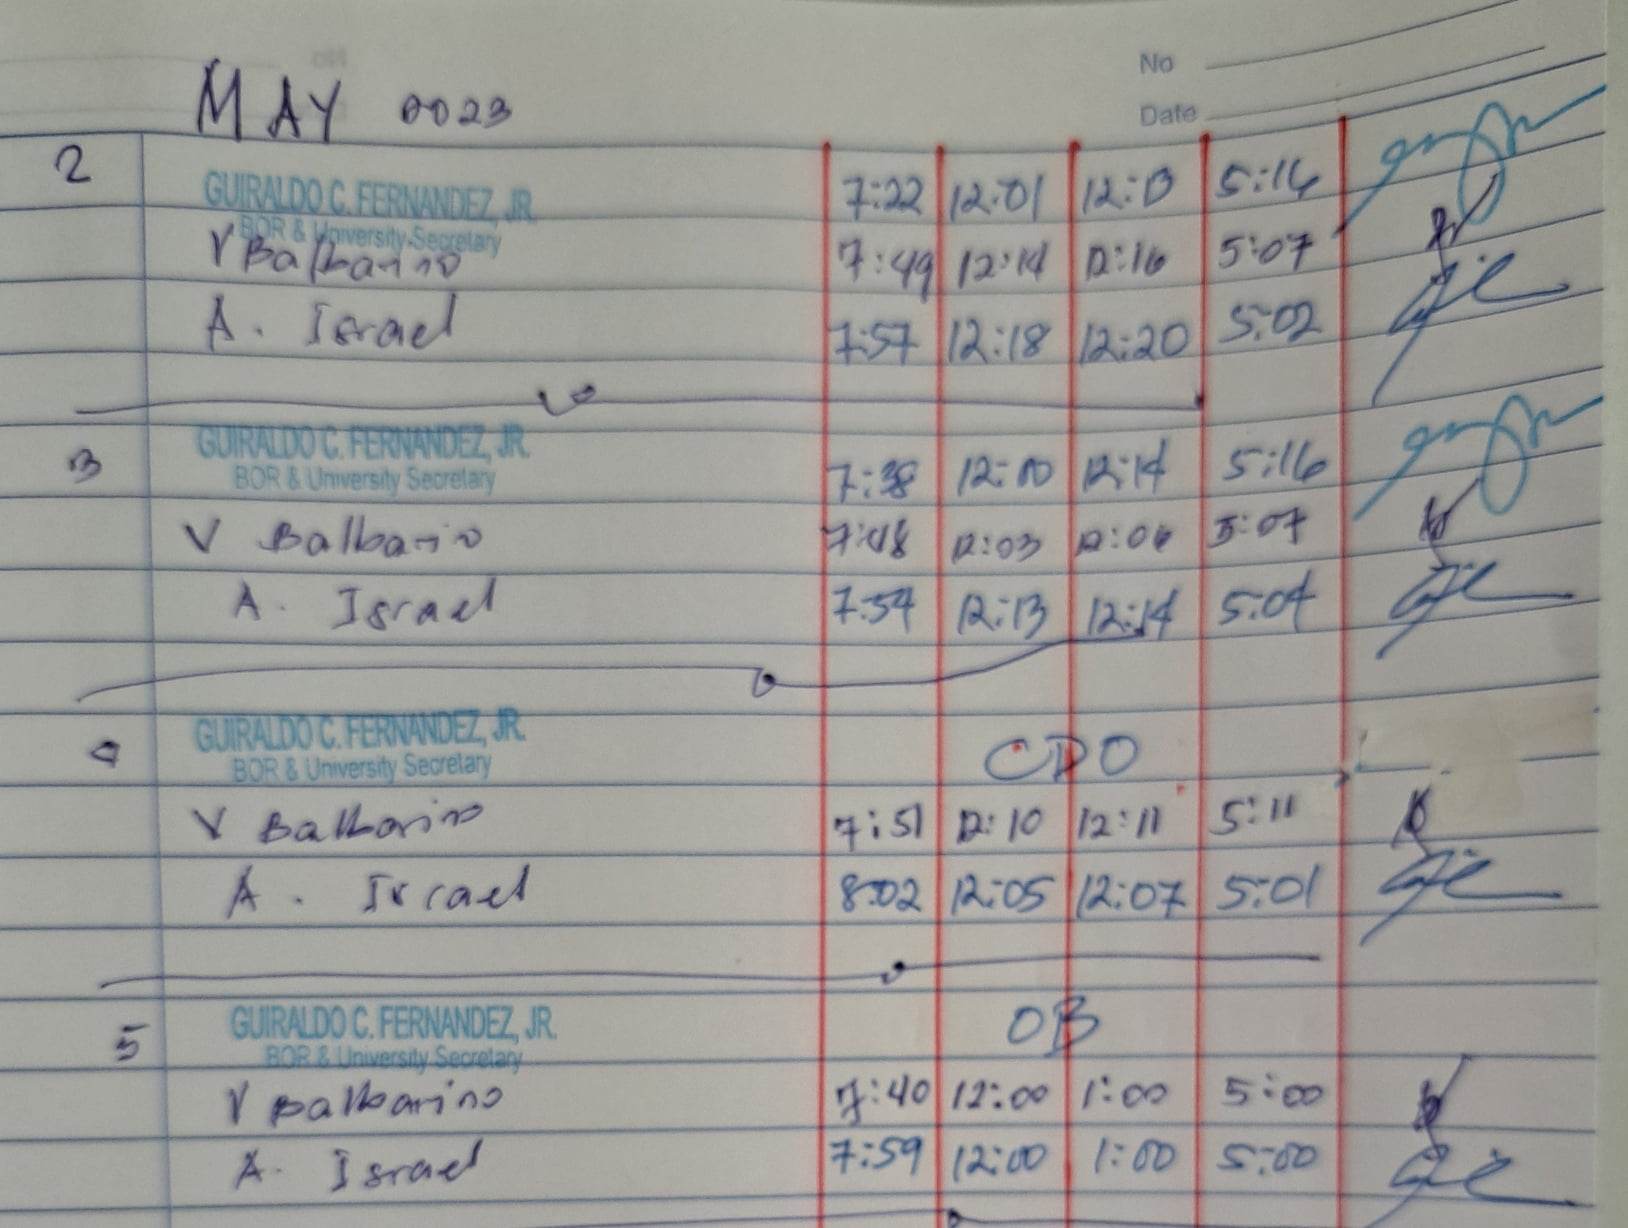 No
MAY 2023
Date
2 GUIRALDO C. FERNANDEZ, JR. 7:22 12:01 12:13 5:16
BOR & University Secretary
V Balbarino 7:49 12:14 12:16 5:07
A. Israel 7:57 12:18 12:20 5:02
3 GUIRALDO C. FERNANDEZ, JR. 7:38 12:00 12:14 5:16
BOR & University Secretary
V Balbarino 7:48 12:03 12:04 5:07
A. Israel 7:54 12:13 12:14 5:04
4 GUIRALDO C. FERNANDEZ, JR. CDO
BOR & University Secretary
V Balbarino 7:51 12:10 12:11 5:11
A. Israel 8:02 12:05 12:07 5:01
5 GUIRALDO C. FERNANDEZ, JR. OB
BOR & University Secretary
V Balbarino 7:40 12:00 1:00 5:00
A. Israel 7:59 12:00 1:00 5:00